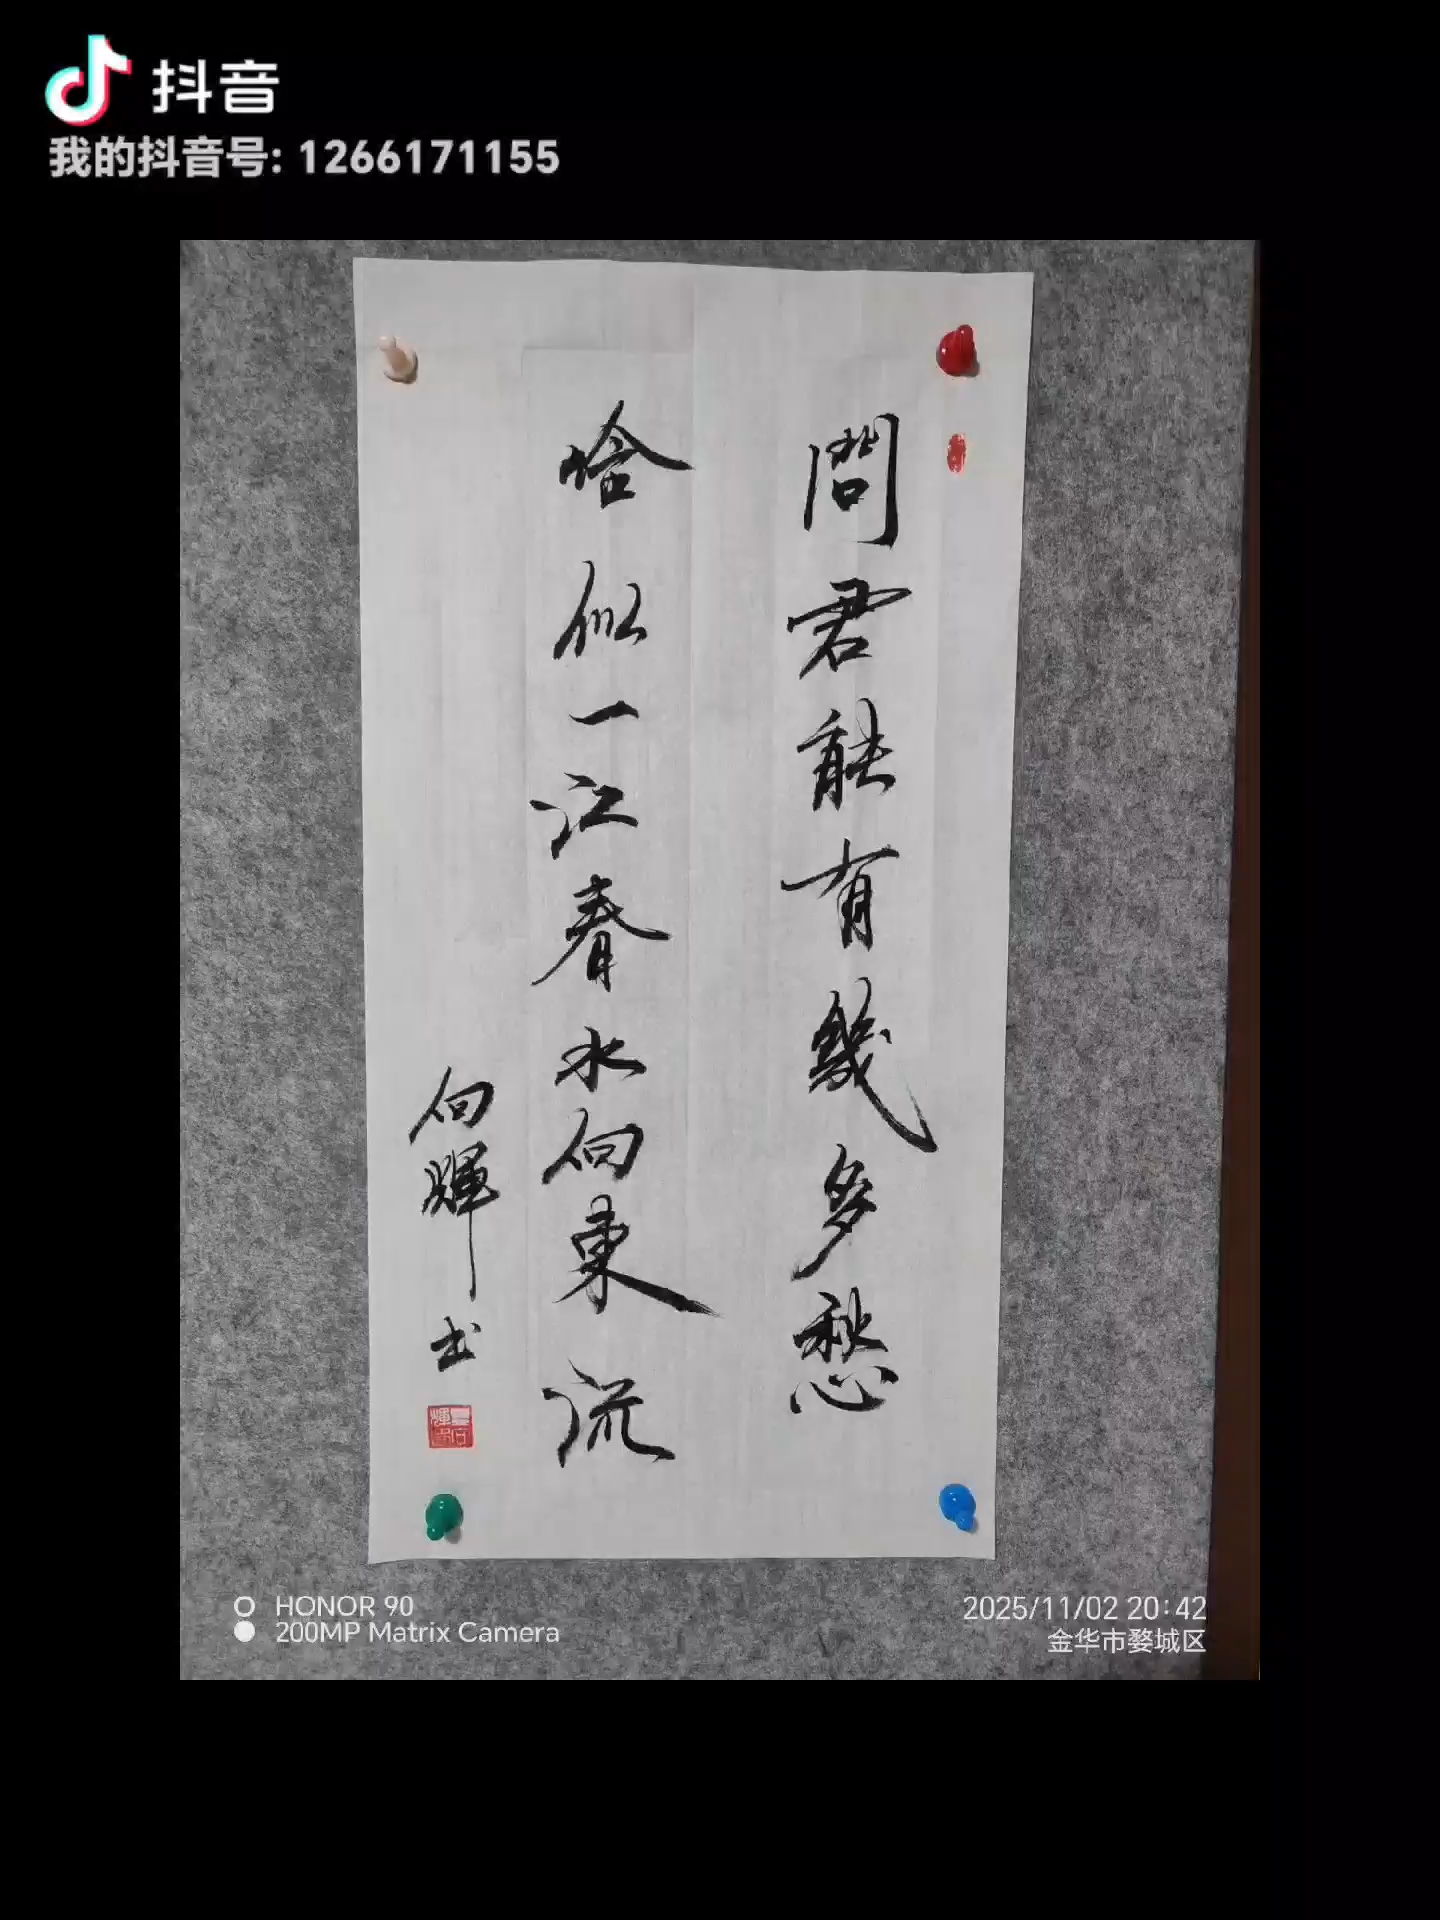 抖音
我的抖音号: 1266171155
問君能有幾多愁
恰似一江春水向東流
向輝书
HONOR 90
200MP Matrix Camera
2025/11/02 20:42
金华市婺城区